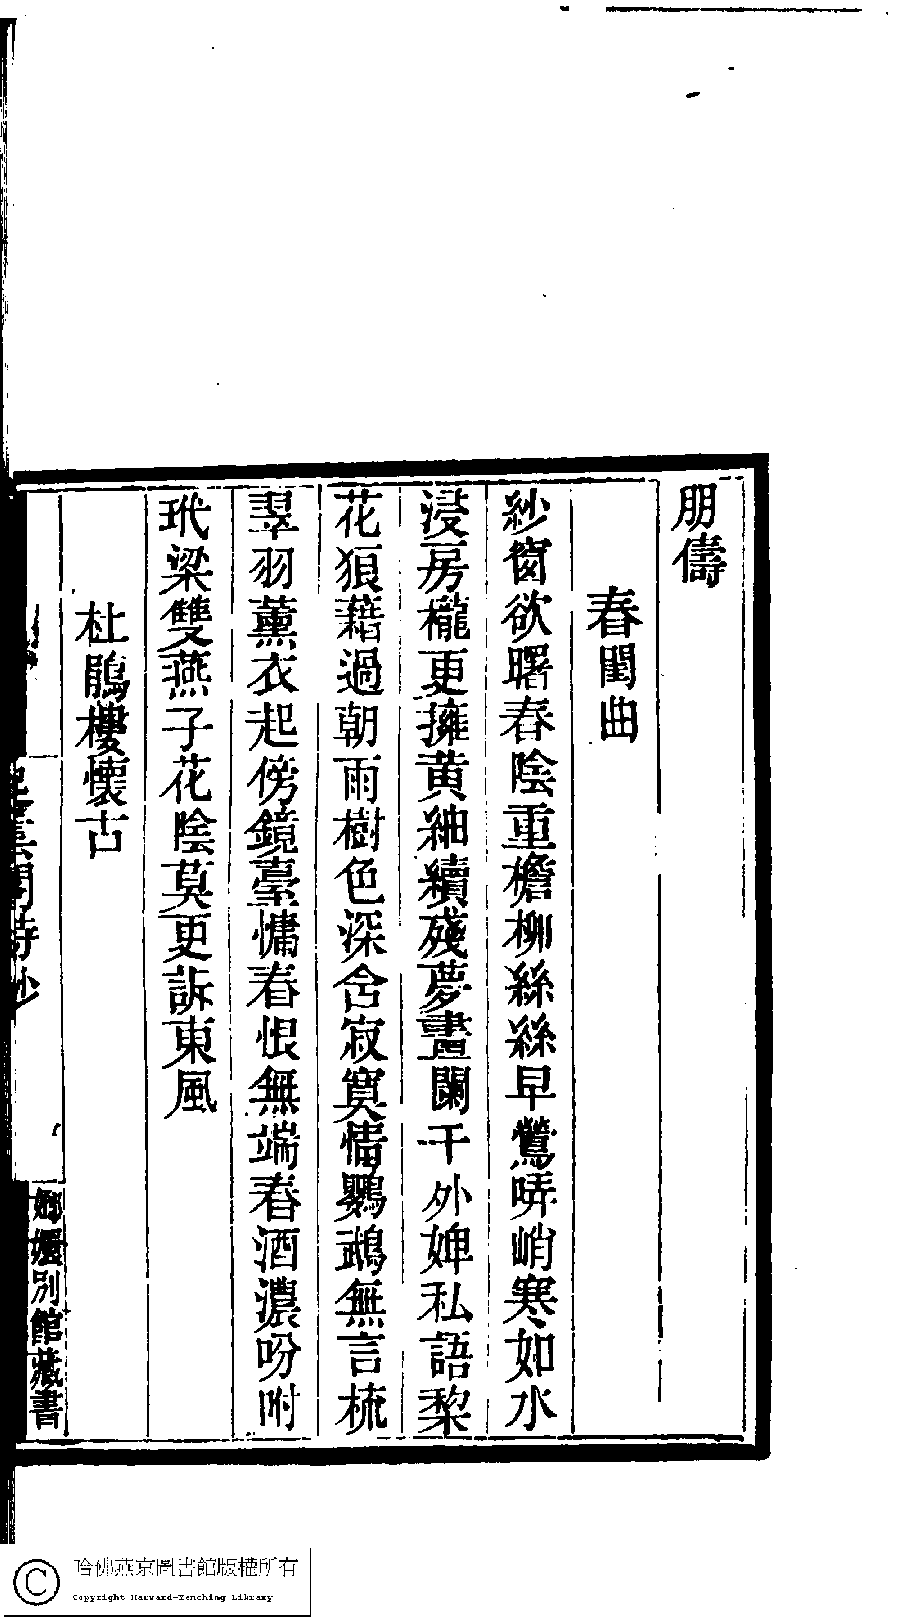 朋儔
春閨曲
紗窗欲曙春陰重檐柳絲絲早鶯哢峭寒如水
浸房櫳更擁黄紬續殘夢畫闌干外婢私語棃
花狼藉過朝雨樹色深含寂寞情鸚鵡無言梳
翠羽薰衣起傍鏡臺慵春恨無端春酒濃吩咐
玳梁雙燕子花陰莫更訴東風
杜鵑樓懷古
雲閣詩鈔
嫏嬛別館藏書
哈佛燕京圖書館版權所有
Copyright Harvard-Yenching Library